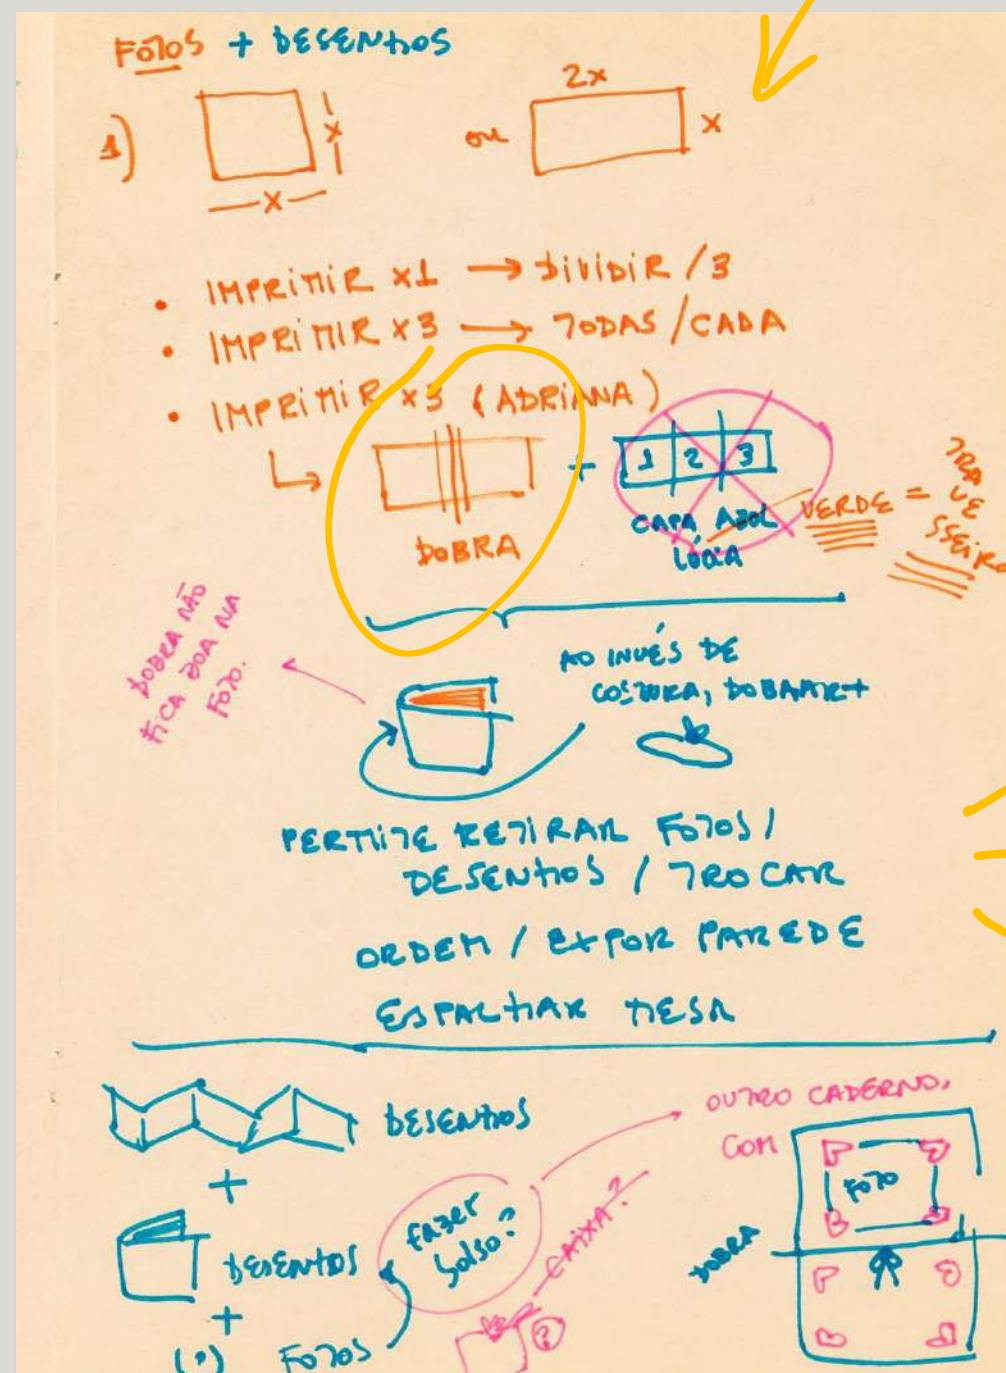 FOTOS + DESENHOS
1)
X
X
ou
2x
X
• IMPRIMIR x1 → DIVIDIR /3
• IMPRIMIR x3 → TODAS / CADA
• IMPRIMIR x3 (ADRIANA)
DOBRA
+
1 2 3
CAPA AZUL
LÚCIA
VERDE =
TRA
VE
SSEIRO
DOBRA NÃO
FICA BOA NA
FOTO.
AO INVÉS DE
COSTURA, DOBRAR +
PERMITE RETIRAR FOTOS /
DESENHOS / TROCAR
ORDEM / EXPOR PAREDE
ESPALHAR MESA
DESENHOS
+
DESENHOS
+
(?) FOTOS
fazer
bolso?
CAIXA?
?
OUTRO CADERNO,
COM
FOTO
DOBRA